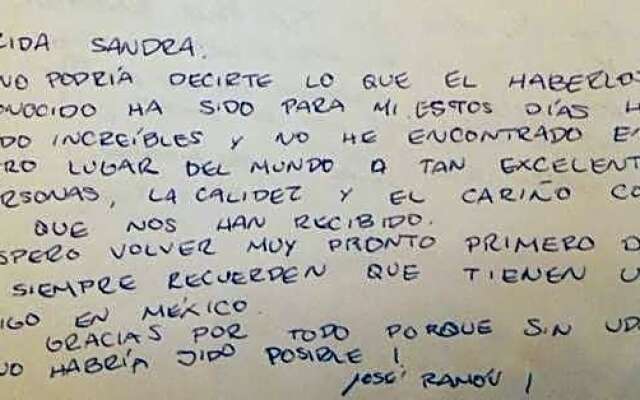 CIDA SANDRA.
NO PODRÍA DECIRTE LO QUE EL HABERLOS
ONOCIDO HA SIDO PARA MI. ESTOS DÍAS H
DO INCREÍBLES Y NO HE ENCONTRADO E
RO LUGAR DEL MUNDO A TAN EXCELENT
ERSONAS, LA CALIDEZ Y EL CARIÑO CO
QUE NOS HAN RECIBIDO.
SPERO VOLVER MUY PRONTO PRIMERO D
SIEMPRE RECUERDEN QUE TIENEN U
IGO EN MÉXICO.
GRACIAS POR TODO PORQUE SIN UD
NO HABRÍA SIDO POSIBLE !
JOSÉ RAMÓN